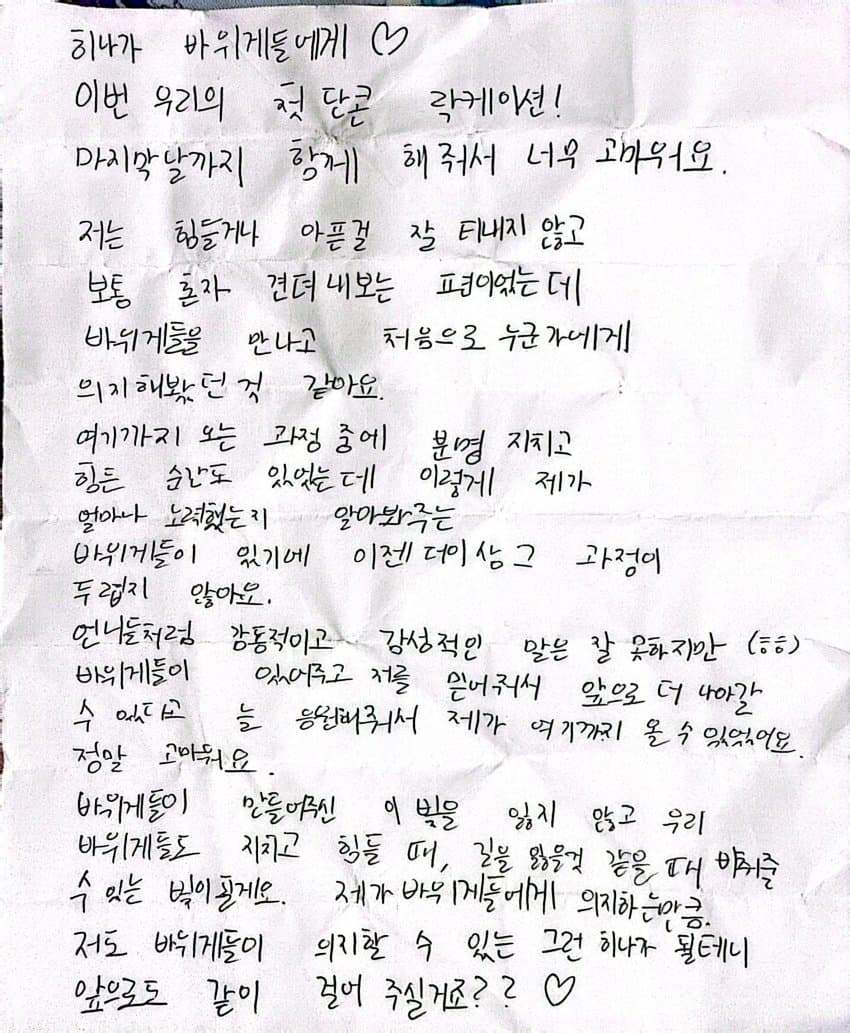 히나가 바위게들에게 ♡
이번 우리의 첫 단콘 락케이션!
마지막날까지 함께 해줘서 너무 고마워요.
저는 힘들거나 아픈걸 잘 티내지 않고
보통 혼자 견뎌내보는 편이었는데
바위게들을 만나고 처음으로 누군가에게
의지해봤던 것 같아요.
여기까지 오는 과정 중에 분명 지치고
힘든 순간도 있었는데 이렇게 제가
얼마나 노력했는지 알아봐주는
바위게들이 있기에 이젠 더이상 그 과정이
두렵지 않아요.
언니들처럼 감동적이고 감성적인 말은 잘 못하지만 (ㅎㅎ)
바위게들이 있어주고 저를 믿어줘서 앞으로 더 나아갈
수 있다고 늘 응원해줘서 제가 여기까지 올 수 있었어요.
정말 고마워요.
바위게들이 만들어주신 이 빛을 잃지 않고 우리
바위게들도 지치고 힘들 때, 길을 잃을것 같을 때 비춰줄
수 있는 빛이될게요. 제가 바위게들에게 의지하는만큼.
저도 바위게들이 의지할 수 있는 그런 히나가 될테니
앞으로도 같이 걸어 주실거죠?? ♡